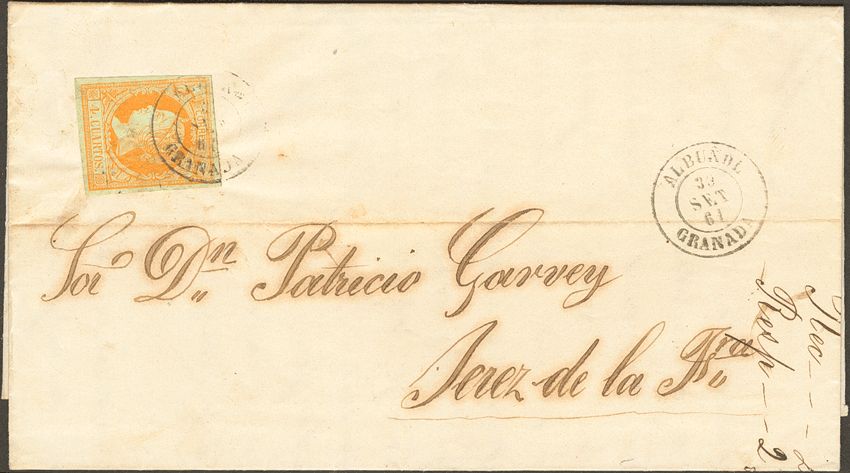 4. CUARTOS.
GRANADA
ALBUÑOL
SET
61
GRANADA
Sor Dn Patricio Garvey
Jerez de la Fra
Rec - - - 2
Resp - - - 2